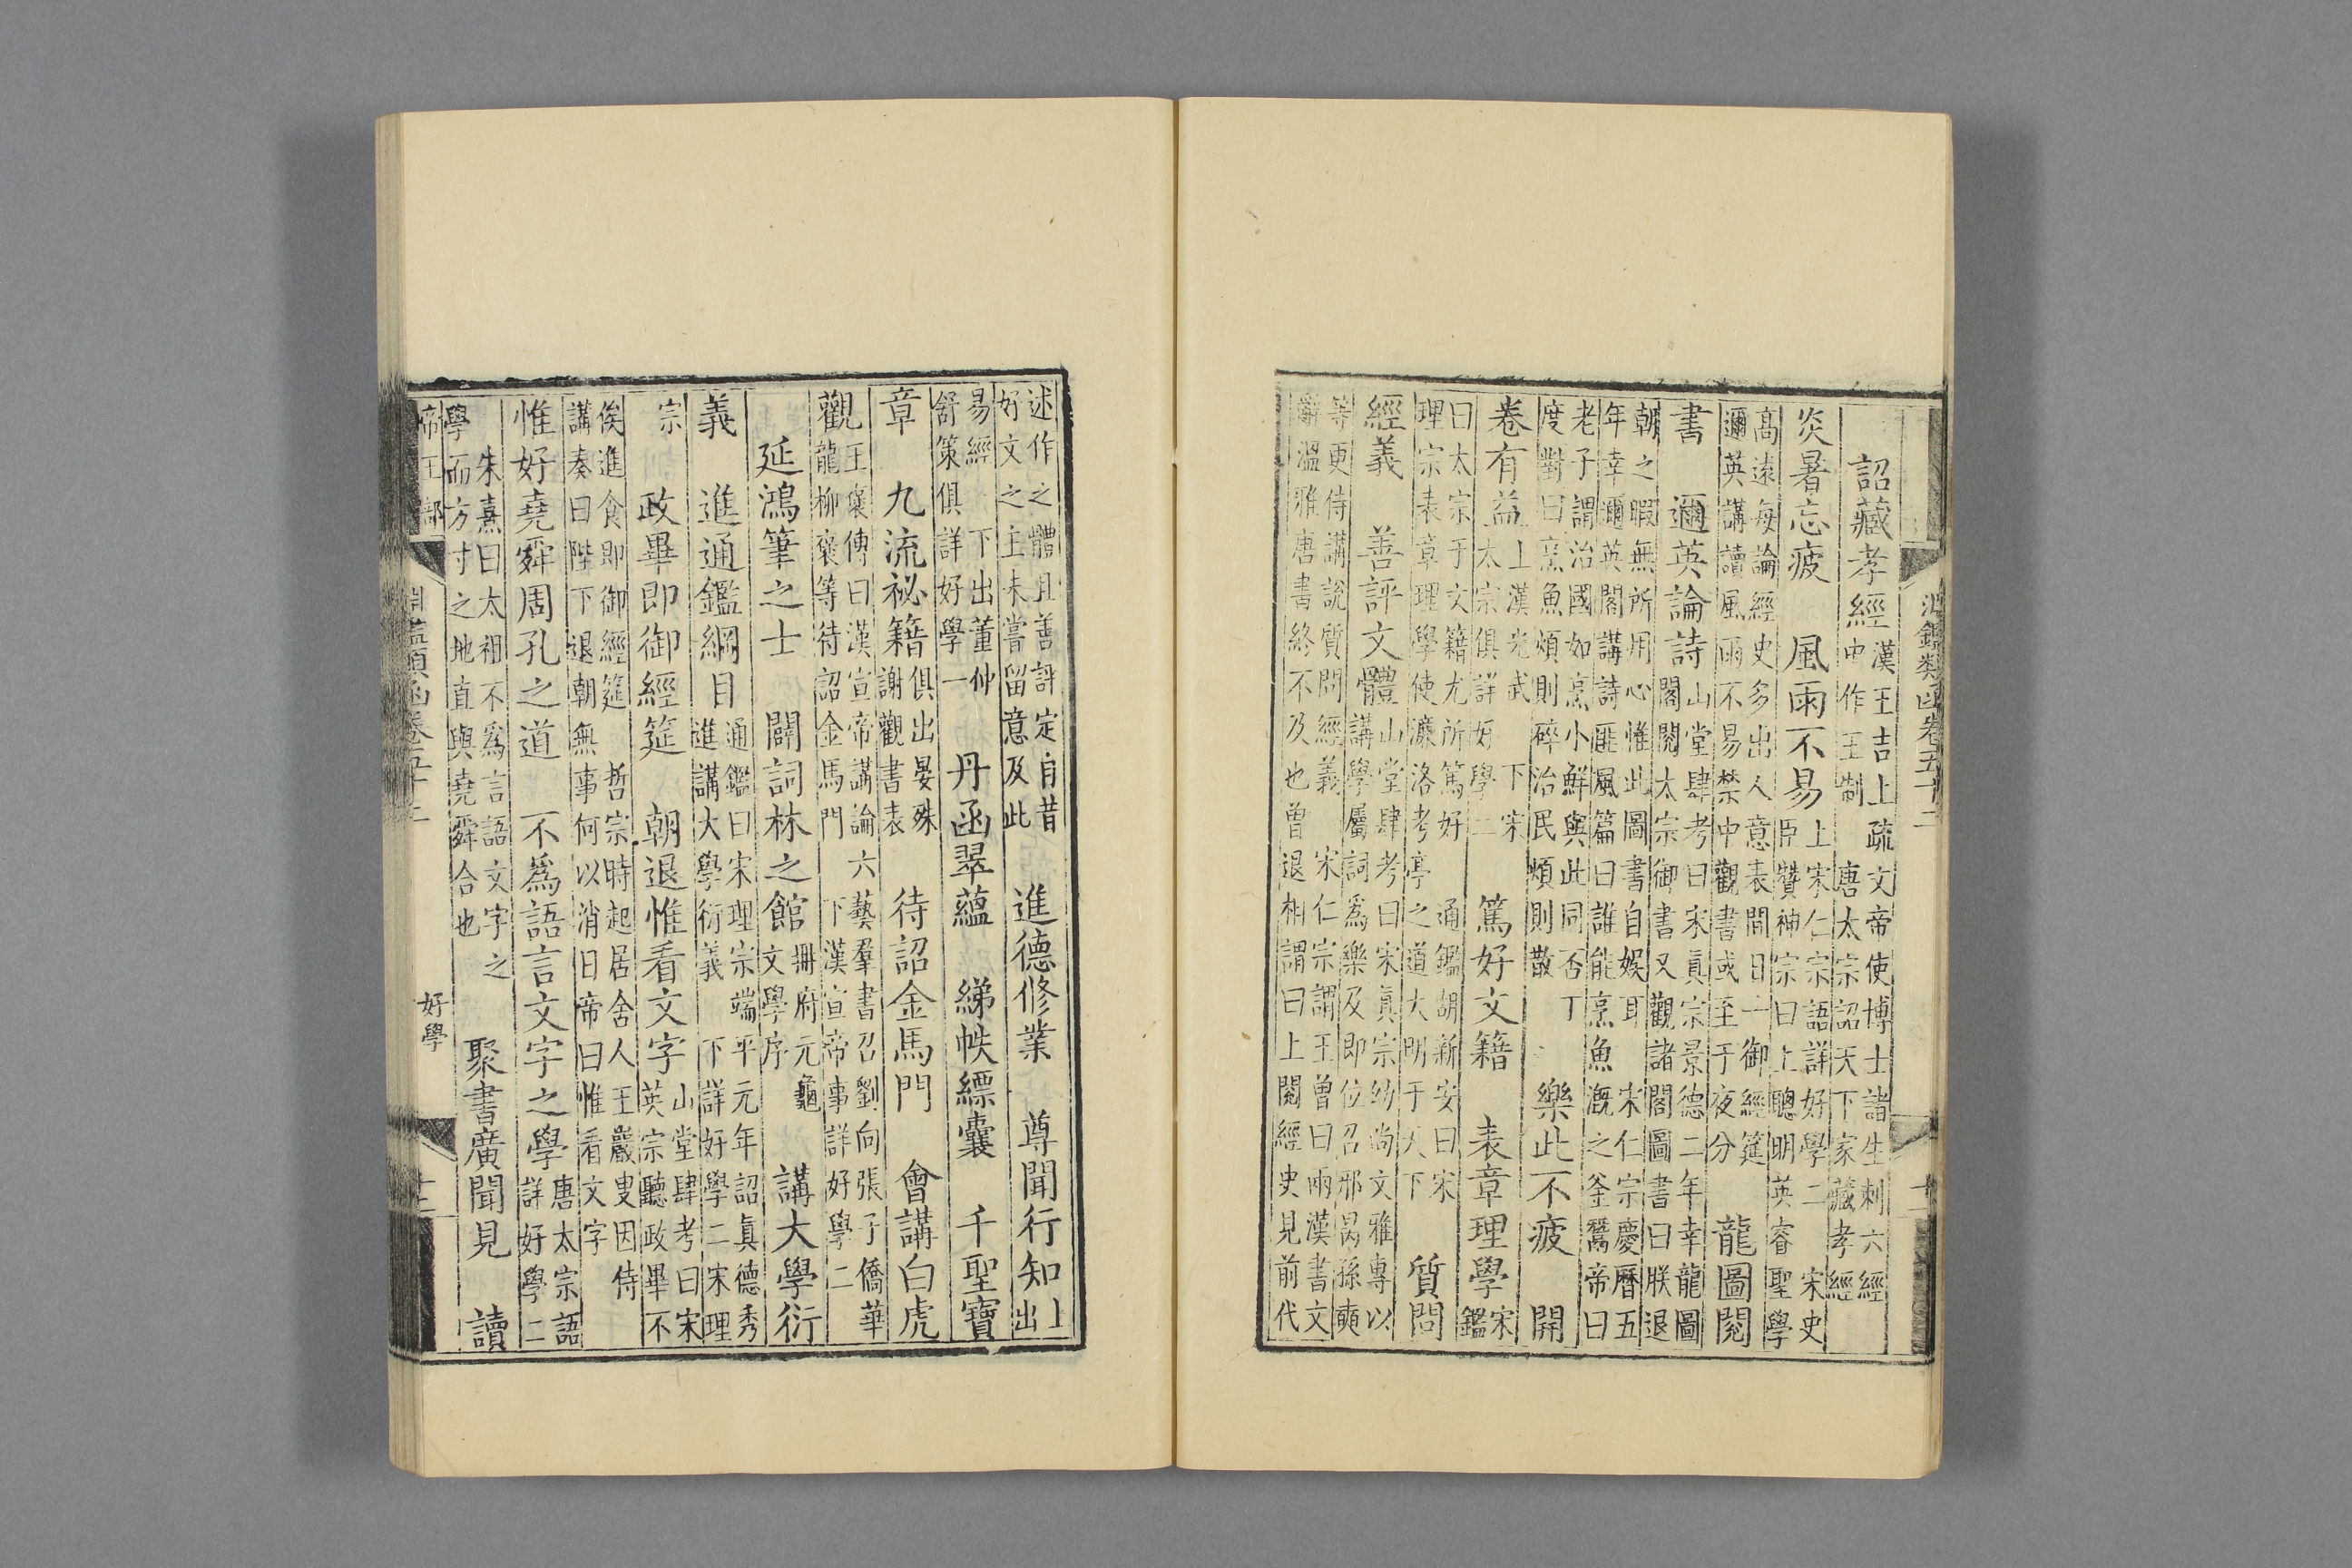 詔藏孝經漢王吉上疏文帝使博士諸生刺六經
中作王制 唐太宗詔天下家藏孝經
炎暑忘疲 風雨不易上宋仁宗語詳好學二 宋史
臣贊神宗曰上聰明英睿聖學
高遠每論經史多出人意表間日一御經筵
邇英講讀風雨不易禁中觀書或至于夜分 龍圖閱
書 邇英論詩山堂肆考曰宋真宗景德二年幸龍圖
閣閱太宗御書又觀諸閣圖書曰朕退
朝之暇無所用心惟此圖書自娛耳 宋仁宗慶曆五
年幸邇英閣講詩匪風篇曰誰能烹魚漑之釜鬵帝曰
老子謂治國如烹小鮮與此同否丁
度對曰烹魚煩則碎治民煩則散 樂此不疲 開
卷有益上漢光武 下宋
太宗俱詳好學二 篤好文籍 表章理學宋
鑑
曰太宗于文籍尤所篤好 通鑑胡新安曰宋
理宗表章理學使濂洛考亭之道大明于天下 質問
經義 善評文體山堂肆考曰宋真宗幼尚文雅專以
講學屬詞爲樂及即位召邢昺孫奭
等更侍講說質問經義 宋仁宗謂王曾曰兩漢書文
辭溫雅唐書終不及也曾退相謂曰上閱經史見前代
淵鑑類函卷五十二 十一
述作之體且善評定自昔
好文之主未嘗留意及此 進德修業 尊聞行知上
出
易經 下出董仲
舒策俱詳好學一 丹函翠蘊 綈帙縹囊 千聖寶
章 九流祕籍俱出晏殊
謝觀書表 待詔金馬門 會講白虎
觀王襃傳曰漢宣帝講論六藝羣書召劉向張子僑華
龍柳襃等待詔金馬門 下漢宣帝事詳好學二
延鴻筆之士 闢詞林之館冊府元龜
文學序 講大學衍
義 進通鑑綱目通鑑曰宋理宗端平元年詔真德秀
進講大學衍義 下詳好學二宋理
宗 政畢即御經筵 朝退惟看文字山堂肆考曰宋
英宗聽政畢不
俟進食即御經筵 哲宗時起居舍人王巖叟因侍
講奏曰陛下退朝無事何以消日帝曰惟看文字
惟好堯舜周孔之道 不爲語言文字之學唐太宗語
詳好學二
朱熹曰太祖不爲言語文字之
學而方寸之地直與堯舜合也 聚書廣聞見 讀
帝王部 淵鑑類函卷五十二 好學 十二